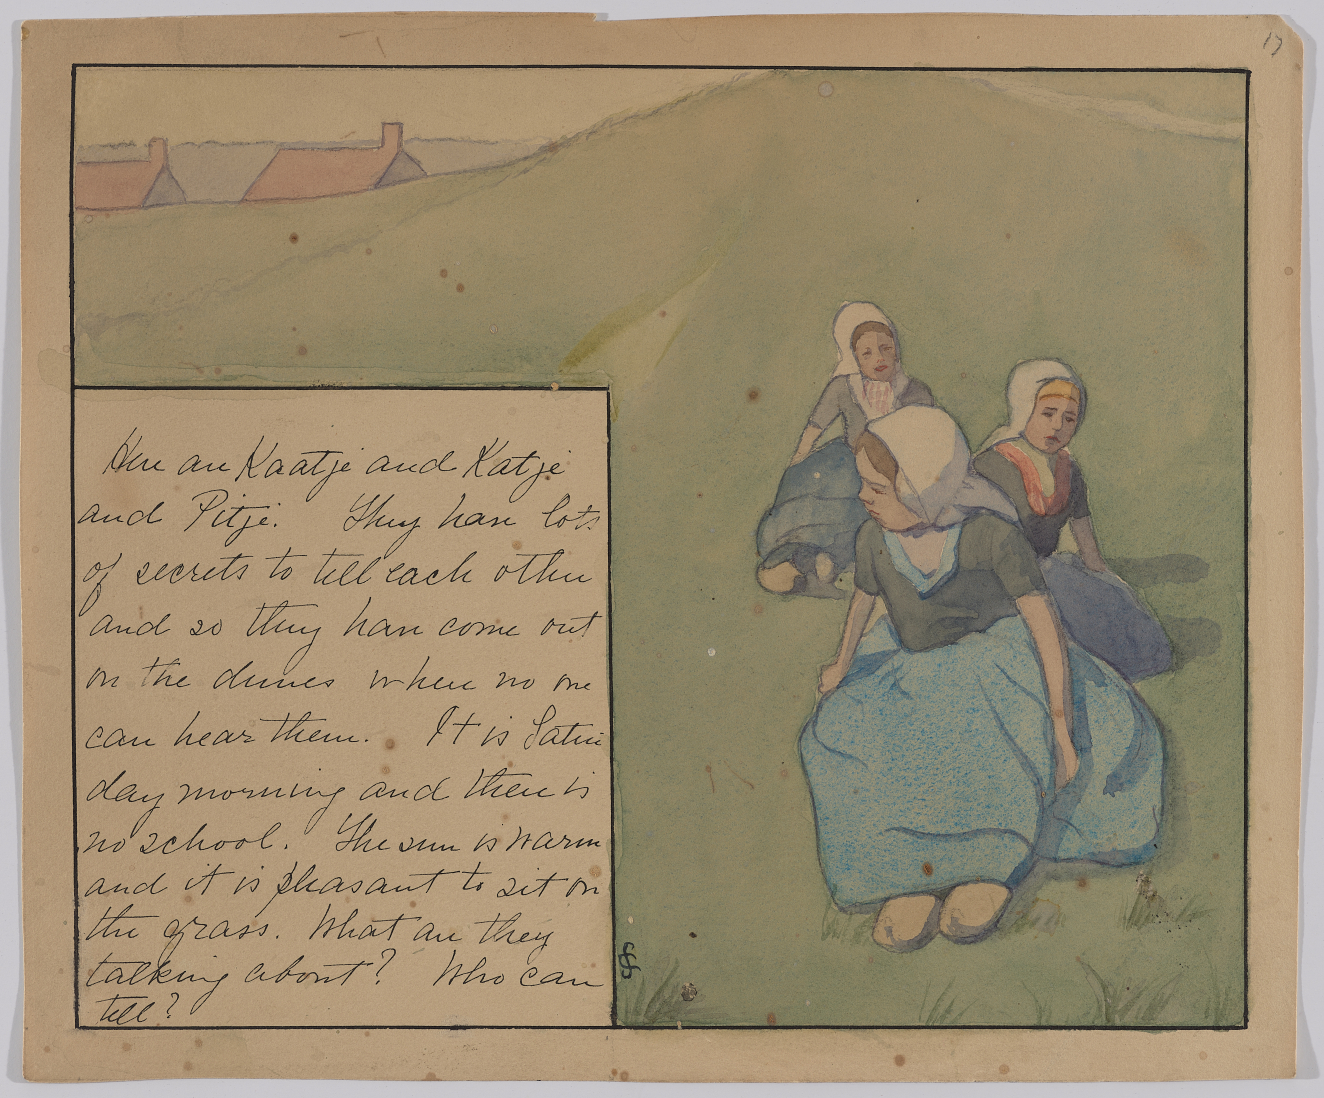 17
Here are Kaatje and Katje
and Pitje. They have lots
of secrets to tell each other
and so they have come out
on the dunes where no one
can hear them. It is Satur
day morning and there is
no school. The sun is warm
and it is pleasant to sit on
the grass. What are they
talking about? Who can
tell?